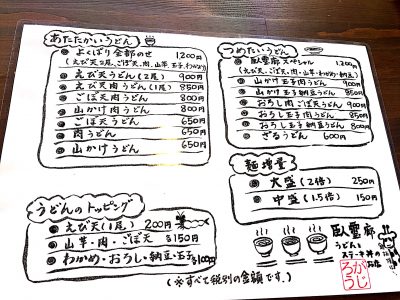 あたたかいうどん
よくばり全部のせ 1200円
(えび天2尾、ごぼ天、肉、山芋、玉子、わかめ)
えび天うどん(2尾) 900円
えび天肉うどん(1尾) 850円
ごぼ天肉うどん 800円
山かけ肉うどん 800円
ごぼ天うどん 650円
肉うどん 650円
山かけうどん 650円
うどんのトッピング
えび天(1尾) 200円
山芋・肉・ごぼ天 各150円
わかめ・おろし・納豆・玉子 各100円
つめたいうどん
臥龍廊スペシャル 1200円
(えび天、ごぼ天、肉、山芋・わかめ・納豆)
山かけ肉うどん 900円
山かけ玉子納豆うどん 850円
おろし肉ごぼ天うどん 900円
おろし玉子肉うどん 850円
おろし玉子納豆うどん 800円
ざるうどん 600円
麺増量
大盛(2倍) 250円
中盛(1.5倍) 150円
(※すべて税別の金額です。)
うどんと
ステーキ丼の
お店
がじろう